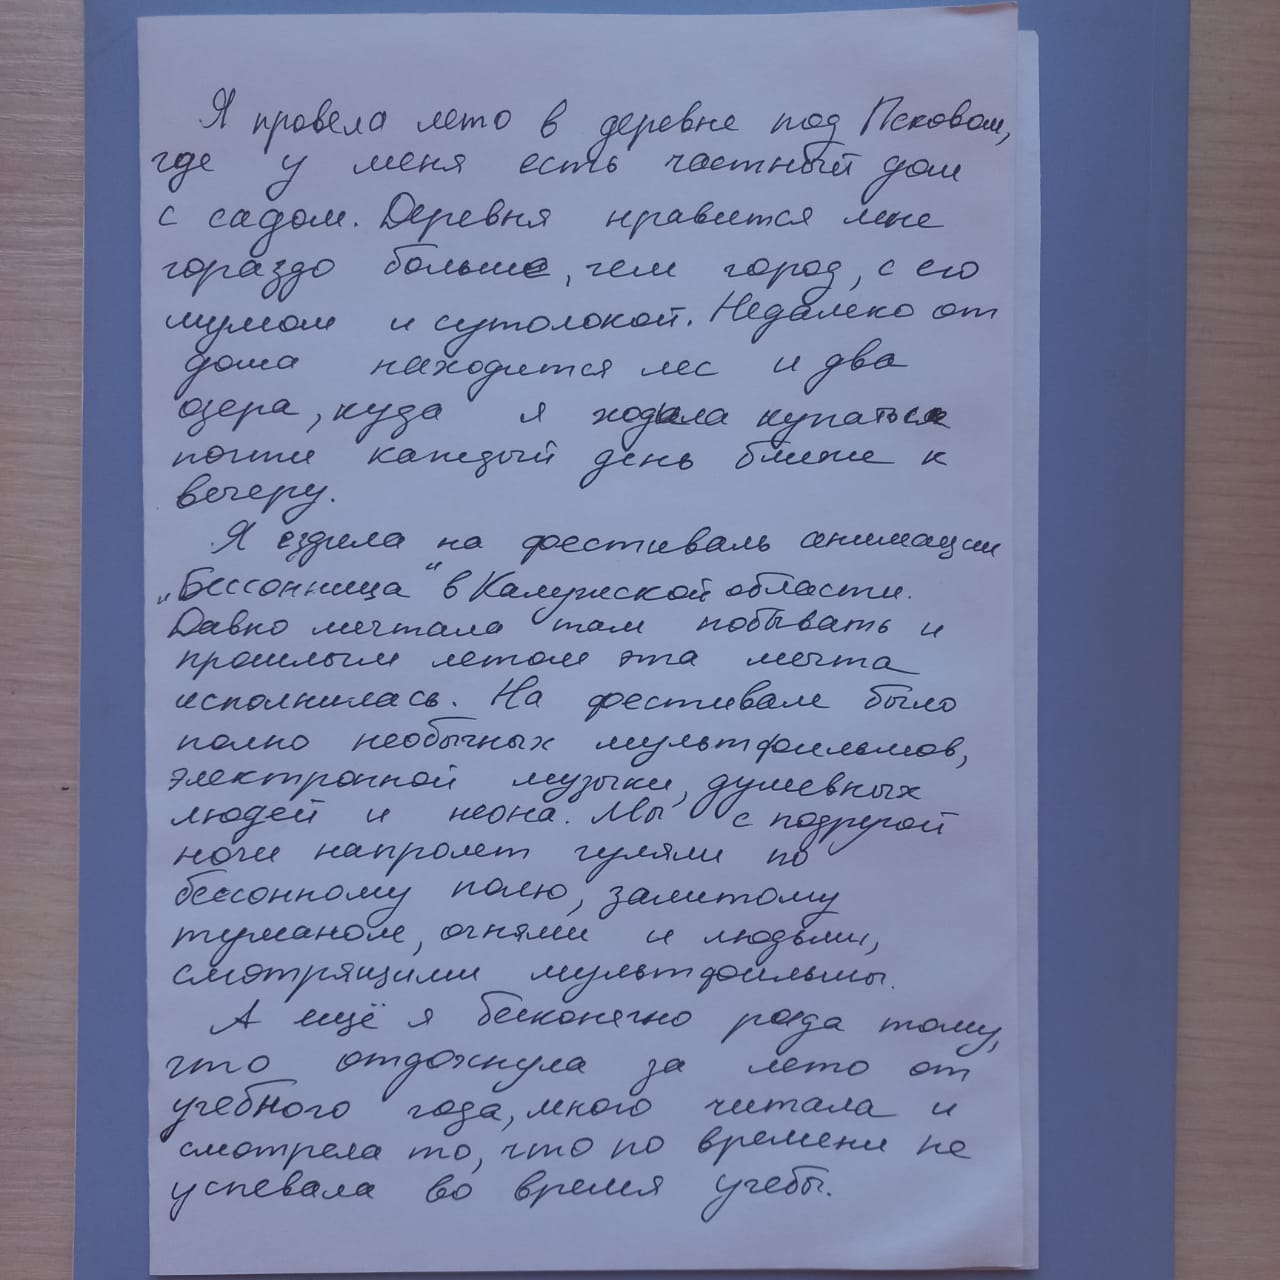 Я провела лето в деревне под Псковом,
где у меня есть частный дом
с садом. Деревня нравится мне
гораздо больше, чем город, с его
шумом и сутолокой. Недалеко от
дома находится лес и два
озера, куда я ходила купаться
почти каждый день ближе к
вечеру.
Я ездила на фестиваль анимации
„Бессонница“ в Калужской области.
Давно мечтала там побывать и
прошлым летом эта мечта
исполнилась. На фестивале было
полно необычных мультфильмов,
электронной музыки, душевных
людей и неона. Мы с подругой
ночи напролет гуляли по
бессонному полю, залитому
туманом, огнями и людьми,
смотрящими мультфильмы.
А ещё я бесконечно рада тому,
что отдохнула за лето от
учебного года, много читала и
смотрела то, что по времени не
успевала во время учебы.